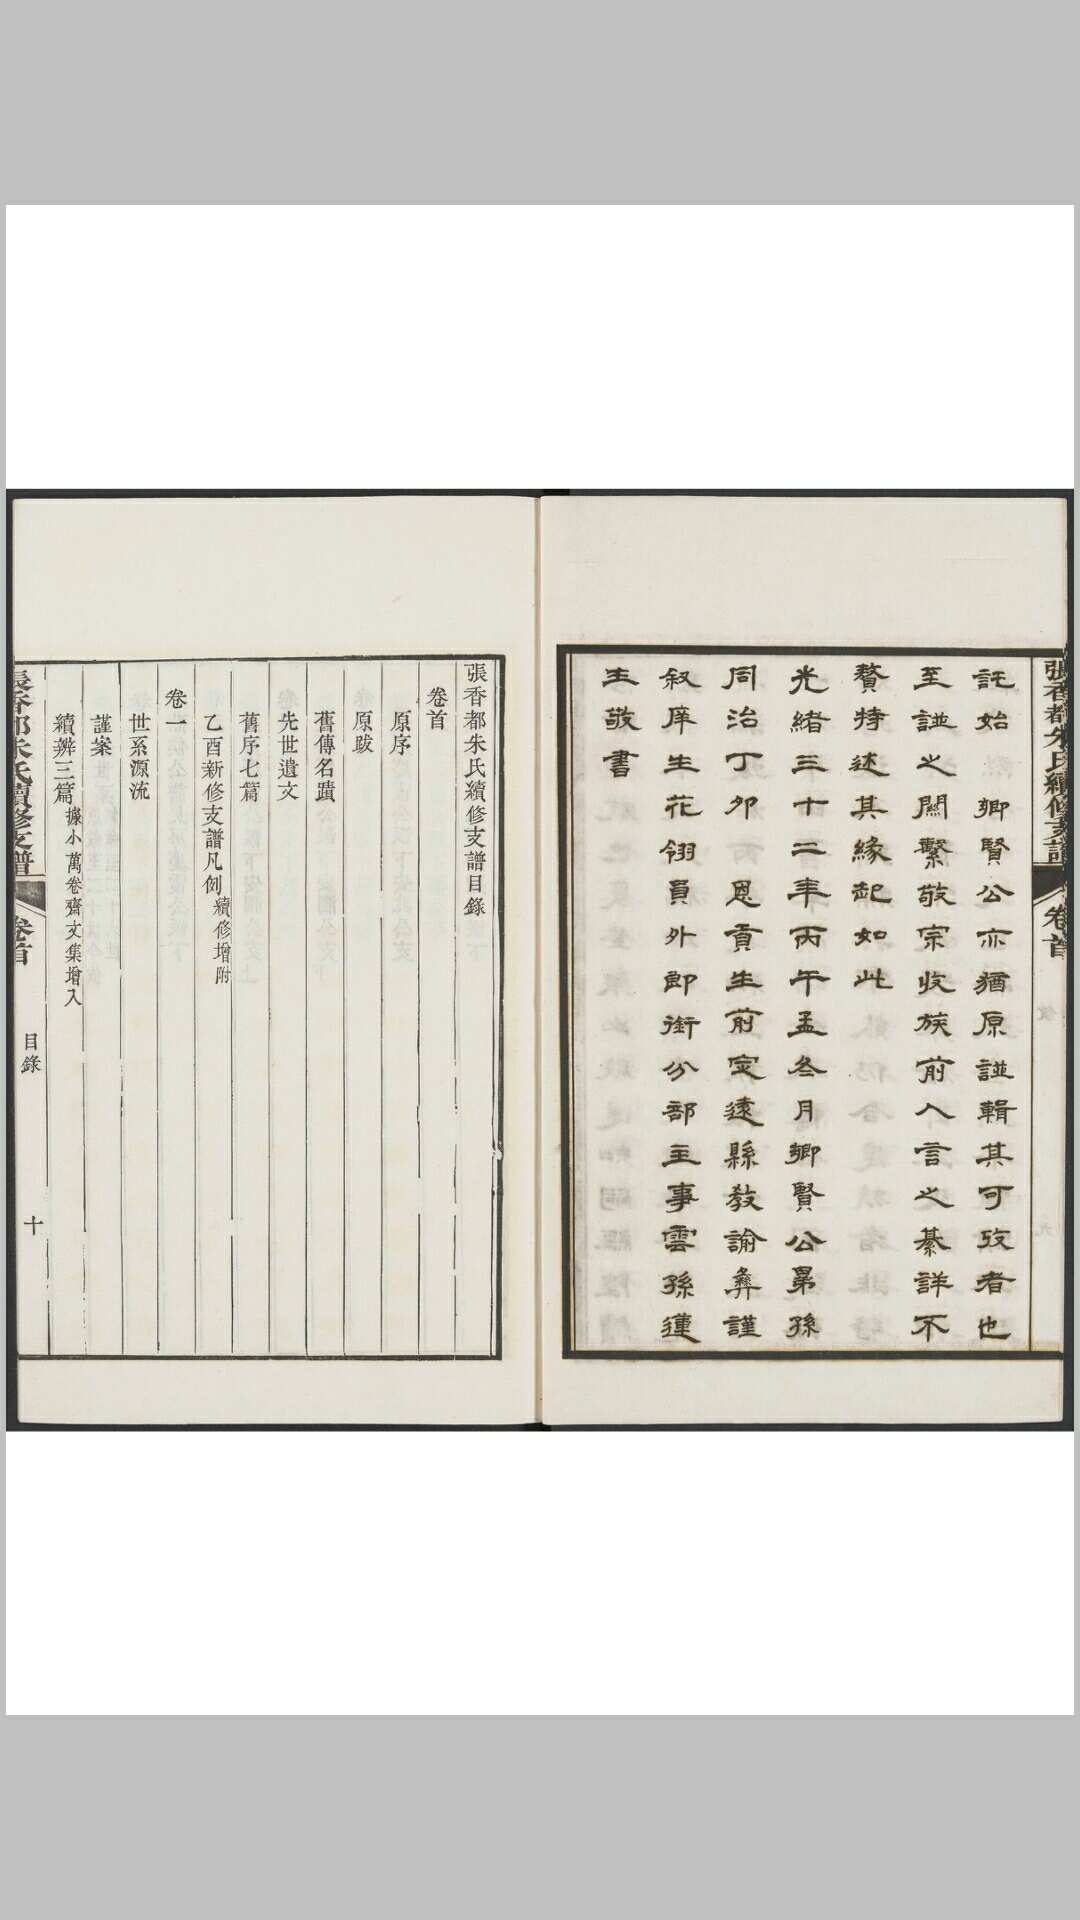 張香都朱氏續修支譜 卷首
託始 鄉賢公亦猶原譜輯其可攷者也
至譜之關繫敬宗收族前人言之綦詳不
贅特述其緣起如此
光緒三十二年丙午孟冬月鄉賢公晜孫
同治丁卯 恩貢生前定遠縣教諭彝謹
叙庠生花翎員外郎銜分部主事雲孫蓮
生敬書
張香都朱氏續修支譜目錄
卷首
原序
原跋
舊傳名蹟
先世遺文
舊序七篇
乙酉新修支譜凡例續修增附
卷一
世系源流
謹案
續辨三篇據小萬卷齋文集增入
張香都朱氏續修支譜 卷首 目錄 十